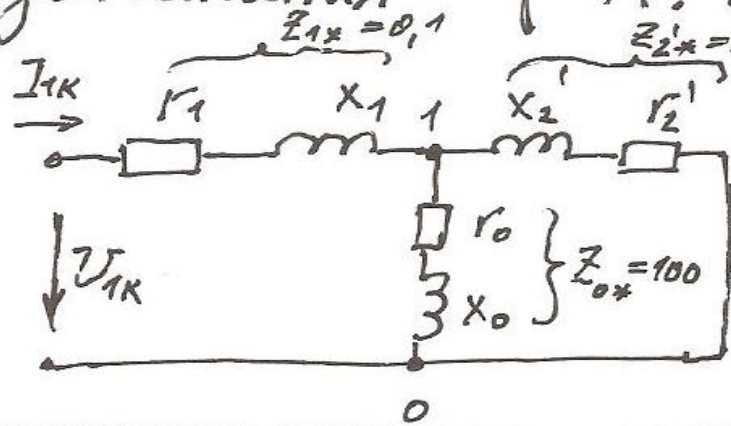 Z1* = 0,1
Z2'* =
I1к
r1
x1
1
x2'
r2'
U1к
r0
x0
Z0* = 100
0